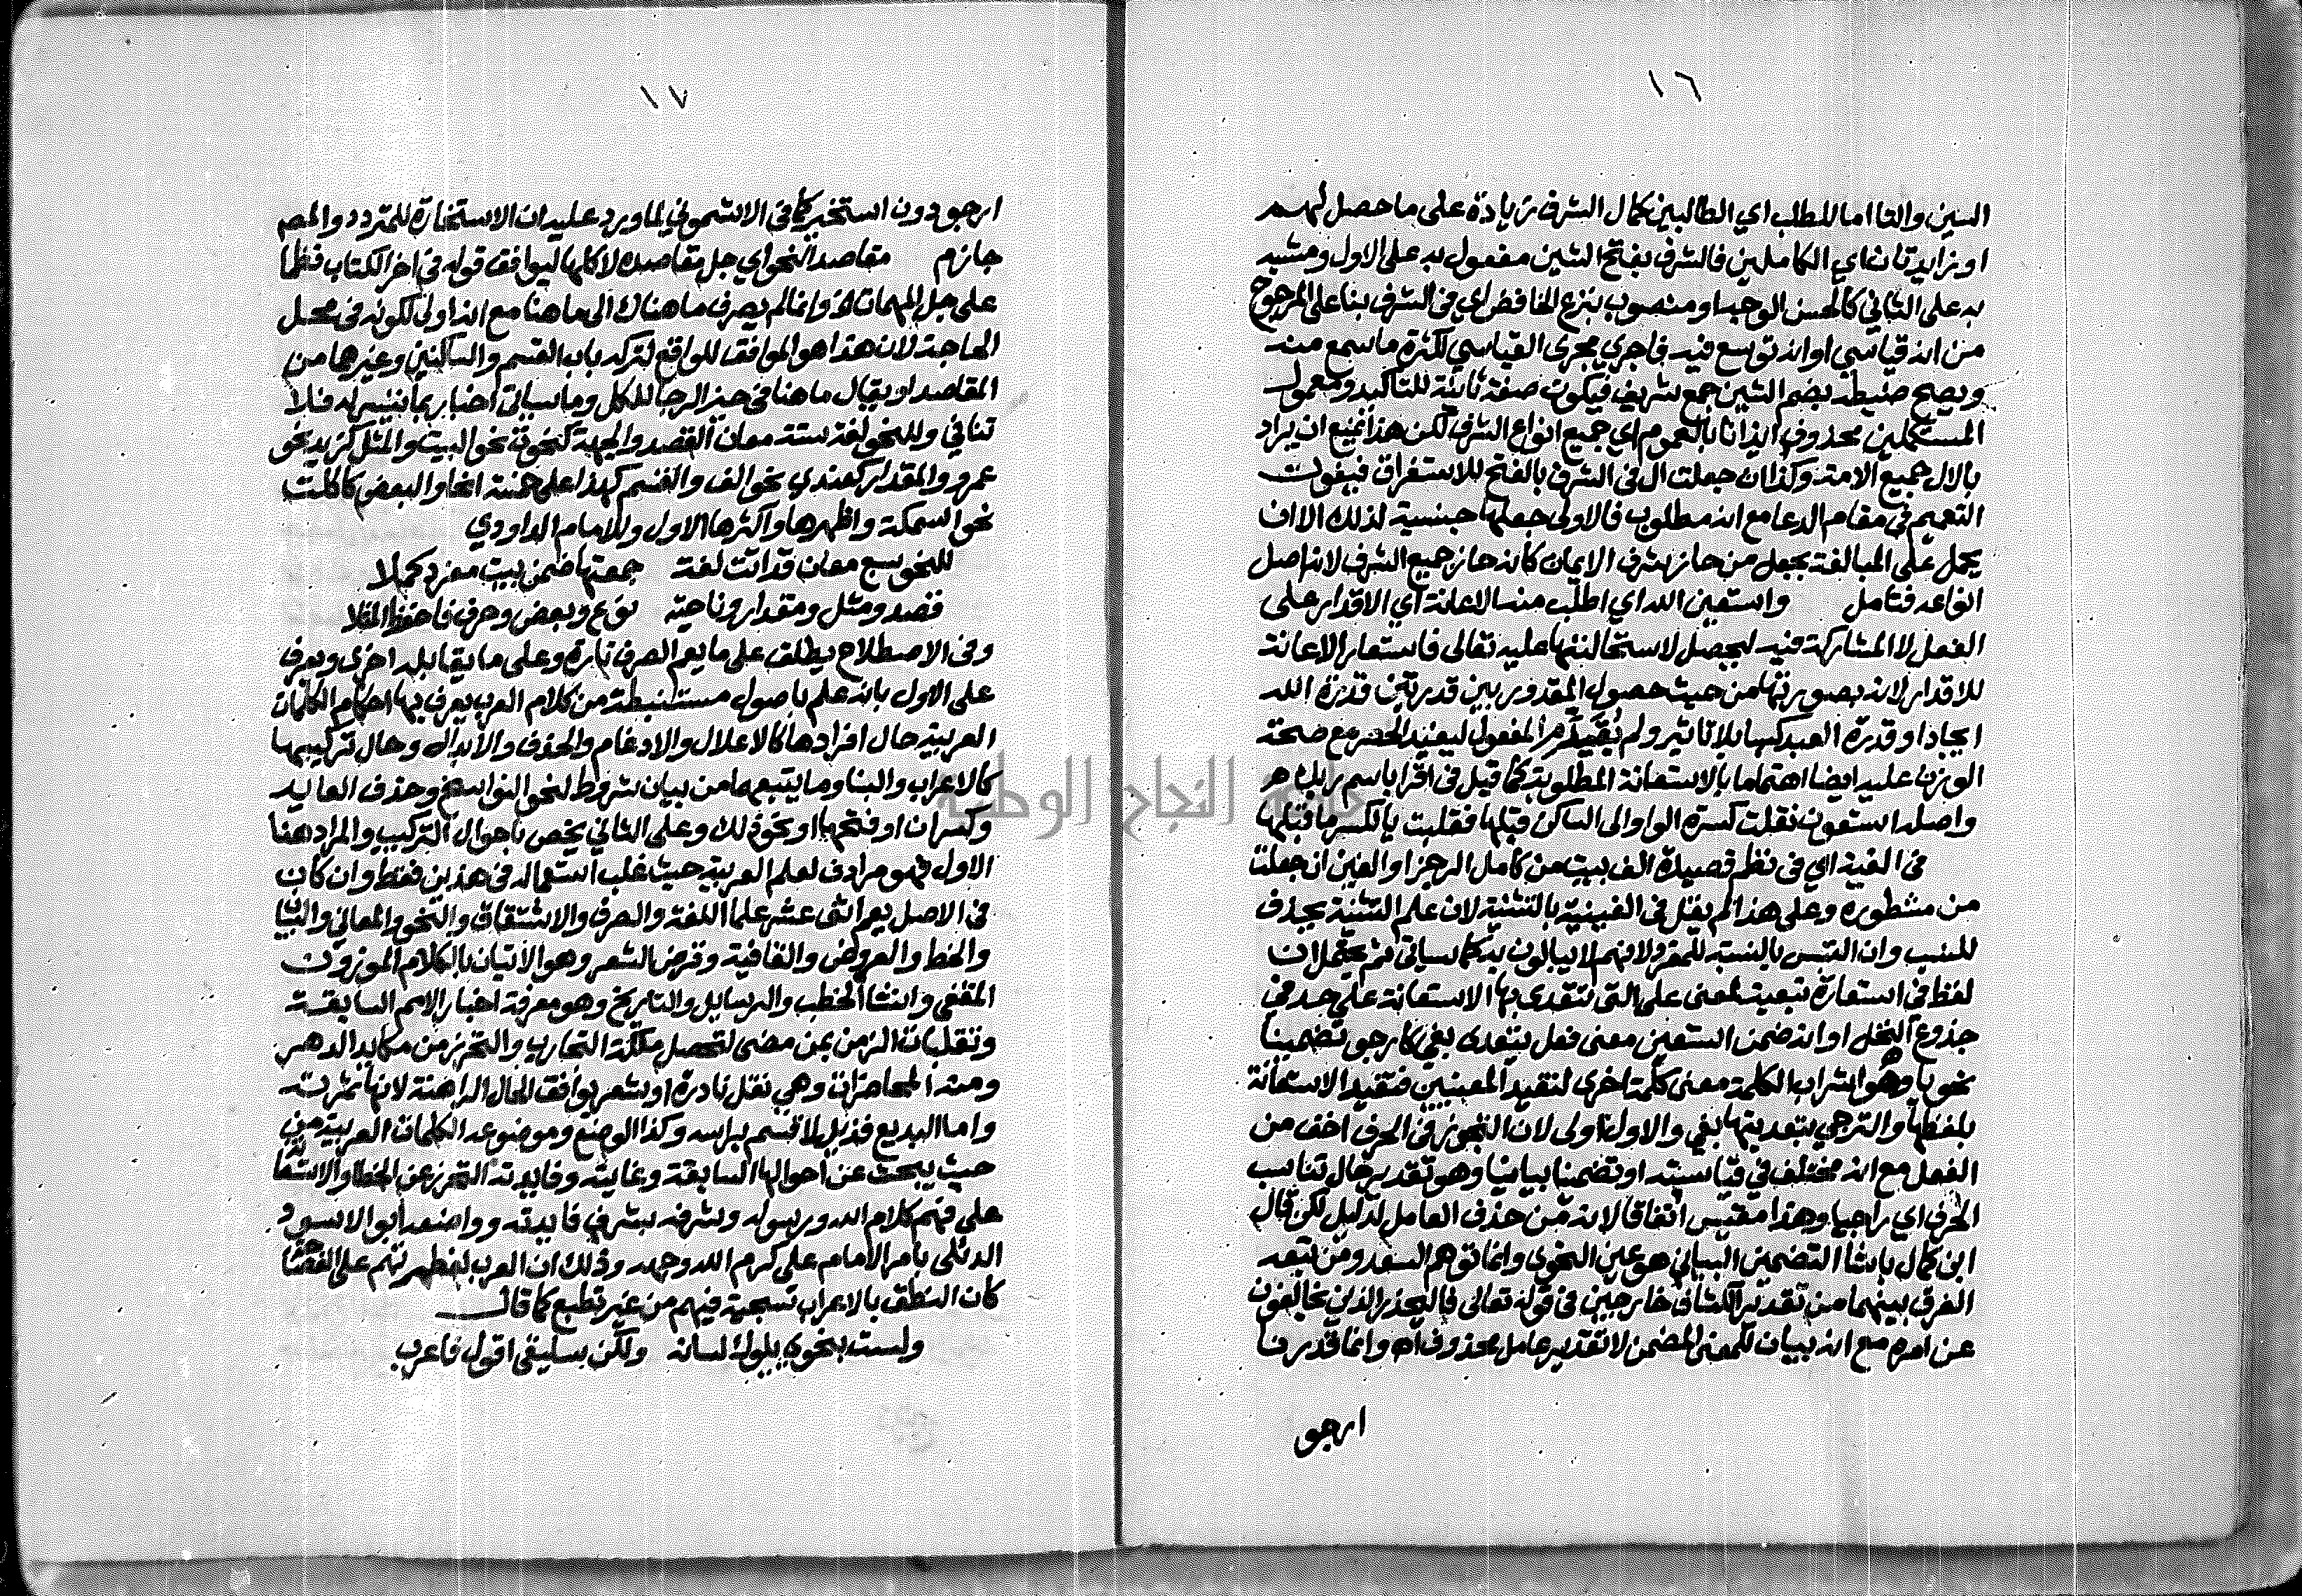 ١٦
السين والتا اما للطلب اي الطالبين كمال الشرف زيادة على ما حصل لهم
او زايدتان اي الكاملين فالشرف بفتح الشين مفعول به على الاول ومشبه
به على الثاني كالحسن الوجه او منصوب بنزع الخافض اي في الشرف بنا على المرجوح
من انه قياسي او انه توسع فيه فاجري مجرى القياسي لكثرة ما سمع منه
ويصح ضبطه بضم الشين جمع شريف فيكون صفة ثانية للتاكيد ومعمول
المستكملين محذوف ايذانا بالعموم اي جميع انواع الشرف لكن هذا يمنع ان يراد
بالال جميع الامة وكذا ان جعلت ال في الشرف بالفتح للاستغراق فيفوت
التعميم في مقام الدعا مع انه مطلوب فالاولى جعلها جنسية لذلك الا ان
يحمل على المبالغة بجعل من حاز شرف الايمان كانه حاز جميع الشرف لانه اصل
انواعه فتامل واستعين الله اي اطلب منه الاعانة اي الاقدار على
الفعل لا المشاركة فيه ليحصل لاستحالتها عليه تعالى فاستعار الاعانة
للاقدار لانه بصورتها من حيث حصول المقدور بين قدرتين قدرة الله
ايجادا وقدرة العبد كسبا بلا تاثير ولم يقدم المفعول ليفيد الحصر مع صحة
الوزن عليه ايضا اهتماما بالاستعانة المطلوبة كما قيل في اقرا باسم ربك
واصله استعون نقلت كسرة الواو الى الساكن قبلها فقلبت يا لكسر ما قبلها
في الفية اي في نظم قصيدة الف بيت من كامل الرجز او الفين ان جعلت
من مشطوره وعلى هذا لم يقل في الفينية بالتثنية لان علم التثنية يحذف
للنسب وان التبس بالنسبة للمفرد لانهم لا يبالون به كما سياتي ثم يحتمل ان
لفظ في استعارة تبعية لمعنى على التي تتعدى بها الاستعانة على حد في
جذوع النخل او انه ضمن استعين معنى فعل يتعدى بفي كارجو تضمينا
نحويا وهو اشراب الكلمة معنى كلمة اخرى لتفيد المعنيين فتفيد الاستعانة
بلفظها والترجي بتعديتها بفي والاول اولى لان التجوز في الحرف اخف من
الفعل مع انه مختلف في قياسيته او تضمينا بيانيا وهو تقدير حال تناسب
الحرف اي راجيا وهذا مقيس اتفاقا لانه من حذف العامل لدليل لكن قال
ابن كمال باشا التضمين البياني هو عين النحوي وانما توهم السعد ومن تبعه
الفرق بينهما من تقدير الكشاف خارجين في قوله تعالى فاليحذر الذين يخالفون
عن امره مع انه بيان للمعنى المضمن لا تقدير عامل محذوف اه وانما قدرنا
ارجو
١٧
ارجو دون استخير كما في الاشموني لما ورد عليه ان الاستخارة للمتردد والمص
جازم مقاصد النحو اي جل مقاصده لا كلها ليوافق قوله في اخر الكتاب نظما
على جل المهمات الخ وانما لم يصرف ما هناك الى ما هنا مع انه اولى لكونه في محل
الحاجة لان هذا هو الموافق للواقع لتركه باب القسم والساكنين وغيرها من
المقاصد او يقال ما هنا في حيز الرجا للكل وما سياتي اخبار بما تيسر له فلا
تنافي وللنحو لغة ستة معان القصد والجهة كنحوت نحو البيت والمثل كزيد نحو
عمرو والمقدار كعندي نحو الف والقسم كهذا على خمسة انحا والبعض كاكلت
نحو السمكة واظهرها واكثرها الاول وللامام الداودي
للنحو سبع معان قد اتت لغة جمعتها ضمن بيت مفرد كملا
قصد ومثل ومقدار وناحية نوع وبعض وحرف فاحفظ المثلا
وفي الاصطلاح يطلق على ما يعم الصرف تارة وعلى ما يقابله اخرى ويعرف
على الاول بانه علم باصول مستنبطة من كلام العرب يعرف بها احكام الكلمات
العربية حال افرادها كالاعلال والادغام والحذف والابدال وحال تركيبها
كالاعراب والبنا وما يتبعهما من بيان شروط لنحو النواسخ وحذف العايد
وكسر ان او فتحها او نحو ذلك وعلى الثاني يخص باحوال التركيب والمراد هنا
الاول فهو مرادف لعلم العربية حيث غلب استعماله في هذين فقط وان كان
في الاصل يعم اثنى عشر علما اللغة والصرف والاشتقاق والنحو والمعاني والبيان
والخط والعروض والقافية وقرض الشعر وهو الاتيان بالكلام الموزون
المقفى وانشا الخطب والرسايل والتاريخ وهو معرفة اخبار الامم السابقة
وتقلبات الزمن بمن مضى لتحصل ملكة التجارب والتحرز من مكايد الدهر
ومنه المحاضرات وهي نقل نادرة او شعر يوافق الحال الراهنة لانها ثمرته
واما البديع فذيل لا قسم براسه وكذا الوضع وموضوعه الكلمات العربية من
حيث يبحث عن احوالها السابقة وغايته وفايدته التحرز عن الخطا والاستعانة
على فهم كلام الله ورسوله وشرفه بشرف فايدته وواضعه ابو الاسود
الدئلى بامر الامام على كرم الله وجهه وذلك ان العرب لفطرتهم على الفصاحة
كان النطق بالاعراب سجية فيهم من غير تطبع كما قال
ولست بنحوي يلوك لسانه ولكن سليقي اقول فاعرب